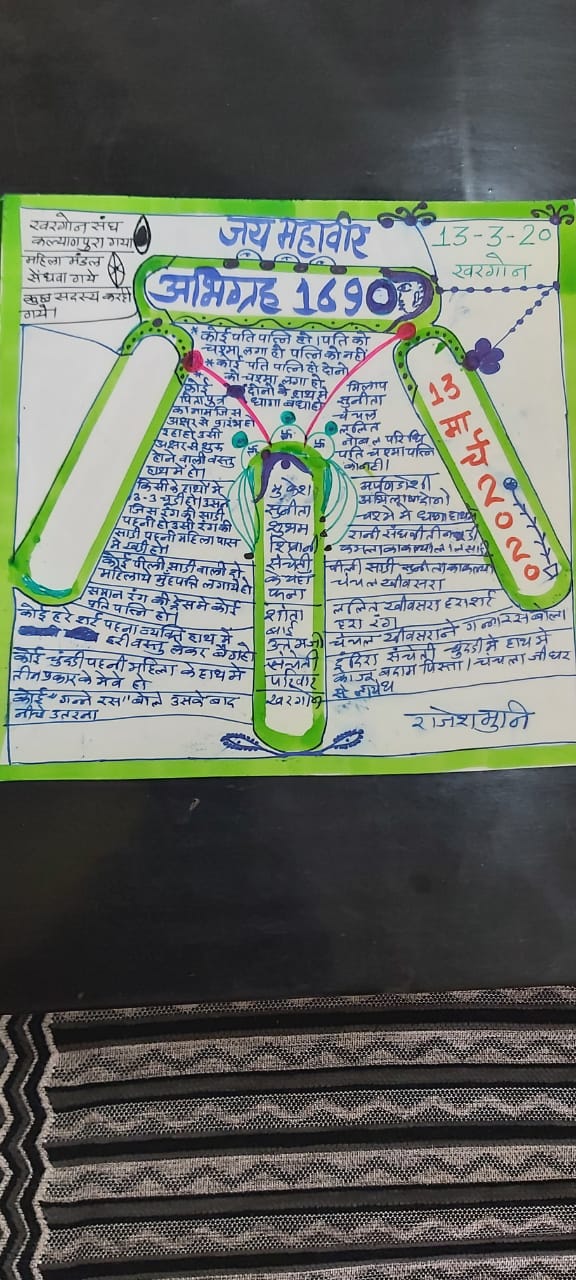 खरगोन संघ
कल्याणपुरा गया
महिला मंडल
सेंधवा गये
कुछ सदस्य करही
गये।
जय महावीर
13-3-20
खरगोन
अभिग्रह 1690
* कोई पति पत्नि हो। पति को
चश्मा लगा हो पत्नि को नही
* कोई पति पत्नि हो दोनो
को चश्मा लगा हो
दोनो के हाथ मे
धागा बंधा हो
कोई
पिता पुत्र
का नाम जिस
अक्षर से प्रारंभ हो
रहा हो उसी
अक्षर से शुरू
होने वाली वस्तु
हाथ मे हो।
किसी के हाथो मे
3-3 चूडी हो। उसमे
जिस रंग की चूडी
पहनी हो उसी रंग की
साडी पहनी महिला पास
मे खडी हो।
कोई पीली साडी वाली दो
महिलाये मुंहपति लगाये हो
समान रंग की ड्रेस मे कोई
पति पत्नि हो।
कोई हरे शर्ट पहना व्यक्ति हाथ मे
हरी वस्तु लेकर बैठा हो
कोई चुंदडी पहनी महिला के हाथ मे
तीन प्रकार के मेवे हो
कोई "गन्ने रस" बोले उसके बाद
नीचे उतरना
मिलाप
सुनीता
चंचल
ललित
नोबल परिधि
पति चश्मा पत्नि
को नही।
अभिलाष दोनो
चश्मे मे धागा हाथ मे
रानी संघवी
पीली साडी
चंचल खीवसरा
ललित खीवसरा हरा शर्ट
हरा रंग
चंचल खीवसराने गन्ना रस बोला
इंदिरा संचेती चुंदडी मे हाथ मे
काजू बदाम पिस्ता। चंचला जी घर
से
मुकेश
सुनीता
शुभम
शिवानी
संचेती
के यहां
फला
शांता
बाई
उत्तमजी
संचेती
परिवार
खरगोन
13 मार्च 2020
राजेशमुनि